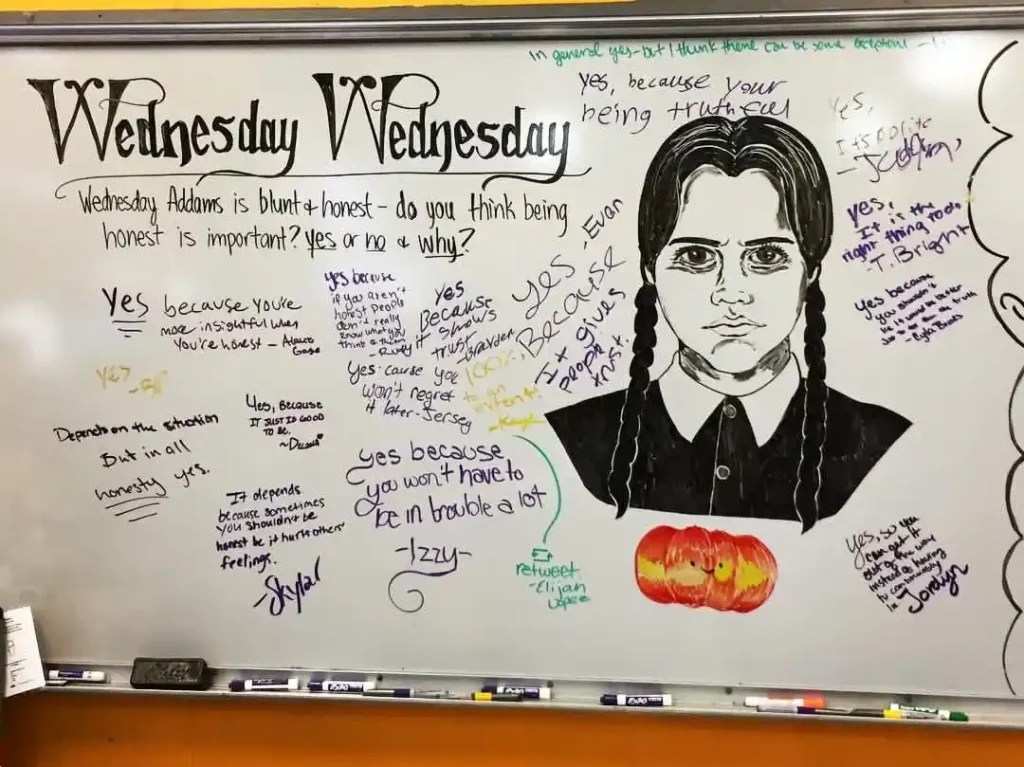 In general yes-but I think there can be some exceptions
Wednesday Wednesday
Wednesday Addams is blunt & honest - do you think being
honest is important? yes or no & why?
yes, because your
being truthful
Yes,
It's polite
yes,
It is the
right thing to do,
-T. Bright
yes because
YES because you're
more insightful when
you're honest -
yes because
if you aren't
honest people
don't really
know what you
think
yes
Because
it shows
trust
-Brayden
yes -Evan
Because
It gives
people
trust.
Yes
100%,
to an
extent!
yes cause you
won't regret
it later-Jersey
Depends on the situation
But in all
honesty yes.
Yes, because
it just is good
to be.
It depends
because sometimes
you shouldn't be
honest bc it hurts others'
feelings.
-Skylar
yes because
you won't have to
be in trouble a lot
-Izzy-
retweet
-Elijah
Lopez
Yes, so you
can get it
out of the way
instead of having
to continuously
lie
Jordyn
EXPO
EXPO
EXPO
EXPO